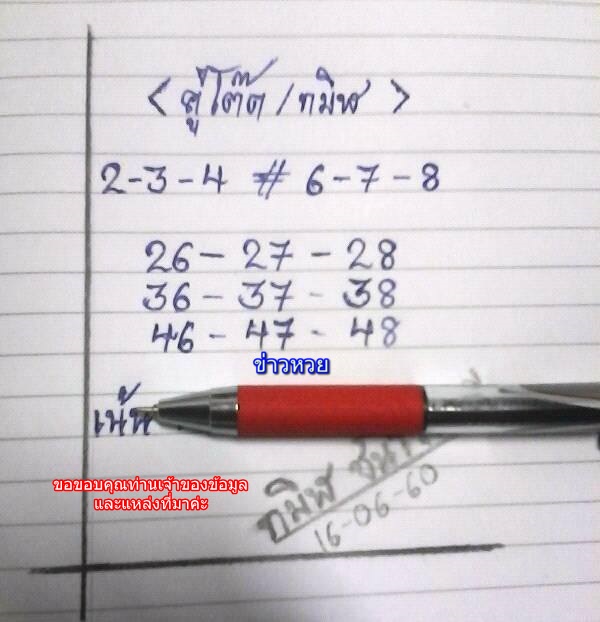 < คู่โต๊ด / ทมิฬ >
2-3-4 # 6-7-8
26 - 27 - 28
36 - 37 - 38
46 - 47 - 48
ข่าวหวย
เน้น
ขอขอบคุณท่านเจ้าของข้อมูล
และแหล่งที่มาค่ะ
ทมิฬ
16-06-60